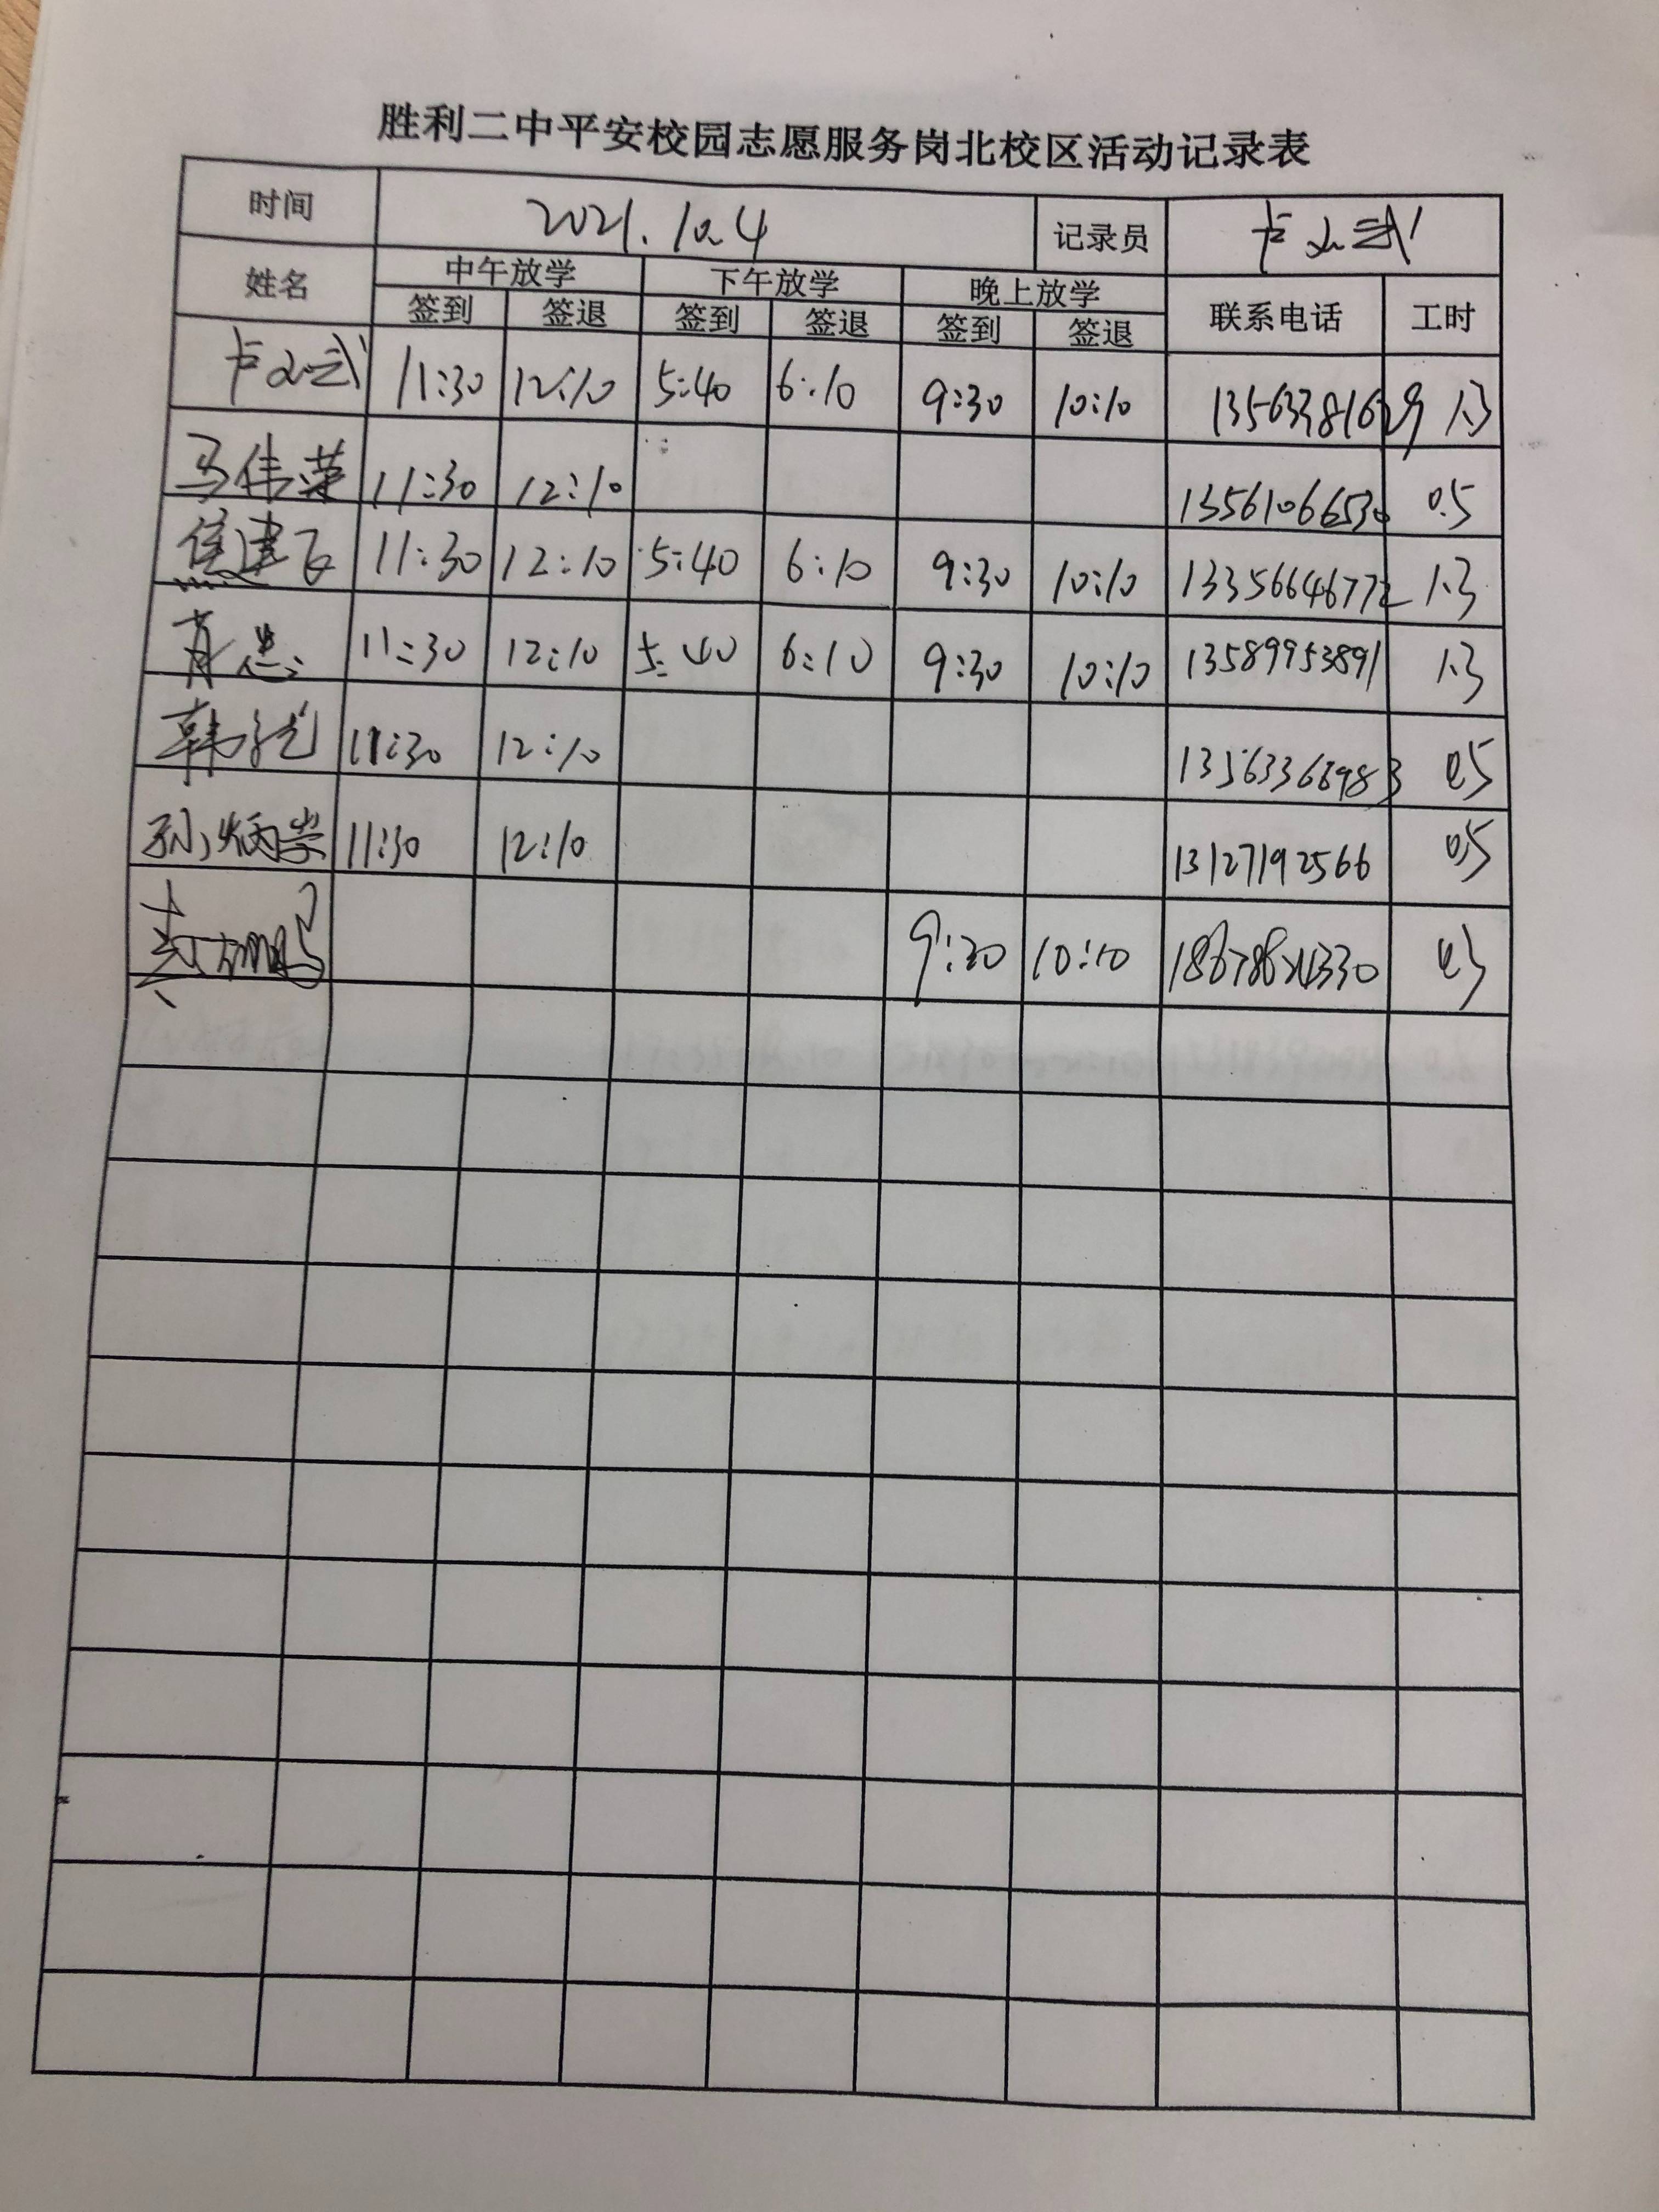 胜利二中平安校园志愿服务岗北校区活动记录表
时间 2021.10.4 记录员 卢文武
姓名 中午放学 下午放学 晚上放学 联系电话 工时
签到 签退 签到 签退 签到 签退
卢文武 11:30 12:10 5:40 6:10 9:30 10:10 13563381629 1.3
马伟荣 11:30 12:10 13561066530 0.5
焦建飞 11:30 12:10 5:40 6:10 9:30 10:10 13356646772 1.3
肖忠 11:30 12:10 5:40 6:10 9:30 10:10 13589953891 1.3
韩 11:30 12:10 13563366983 0.5
孙炳学 11:30 12:10 13127192566 0.5
9:30 10:10 0.3